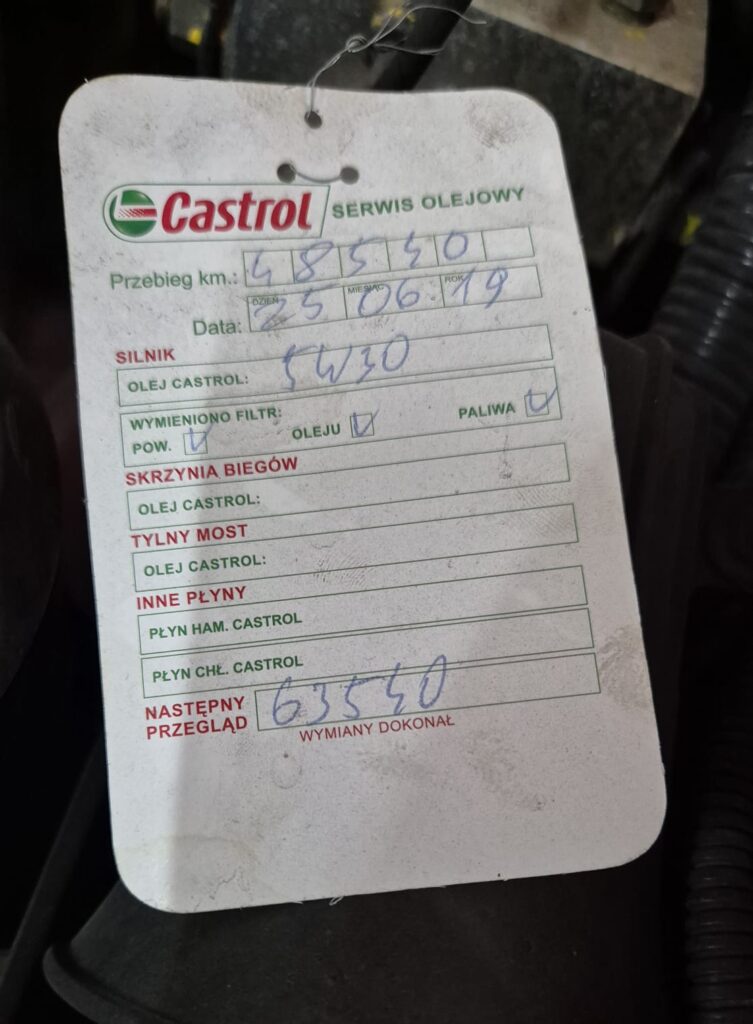 Castrol SERWIS OLEJOWY
Przebieg km.: 48540
DZIEŃ MIESIĄC ROK
Data: 25 06 19
SILNIK
OLEJ CASTROL: 5W30
WYMIENIONO FILTR:
POW. OLEJU PALIWA
SKRZYNIA BIEGÓW
OLEJ CASTROL:
TYLNY MOST
OLEJ CASTROL:
INNE PŁYNY
PŁYN HAM. CASTROL
PŁYN CHŁ. CASTROL
NASTĘPNY PRZEGLĄD 63540
WYMIANY DOKONAŁ